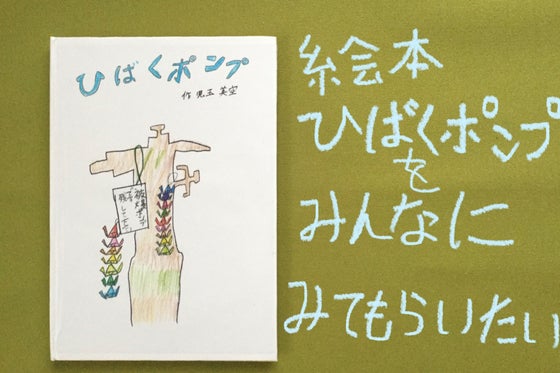 ひばくポンプ
作 児玉 美空
被爆ポンプ
残して下さい
絵本
ひばくポンプ
を
みんなに
みてもらいたい